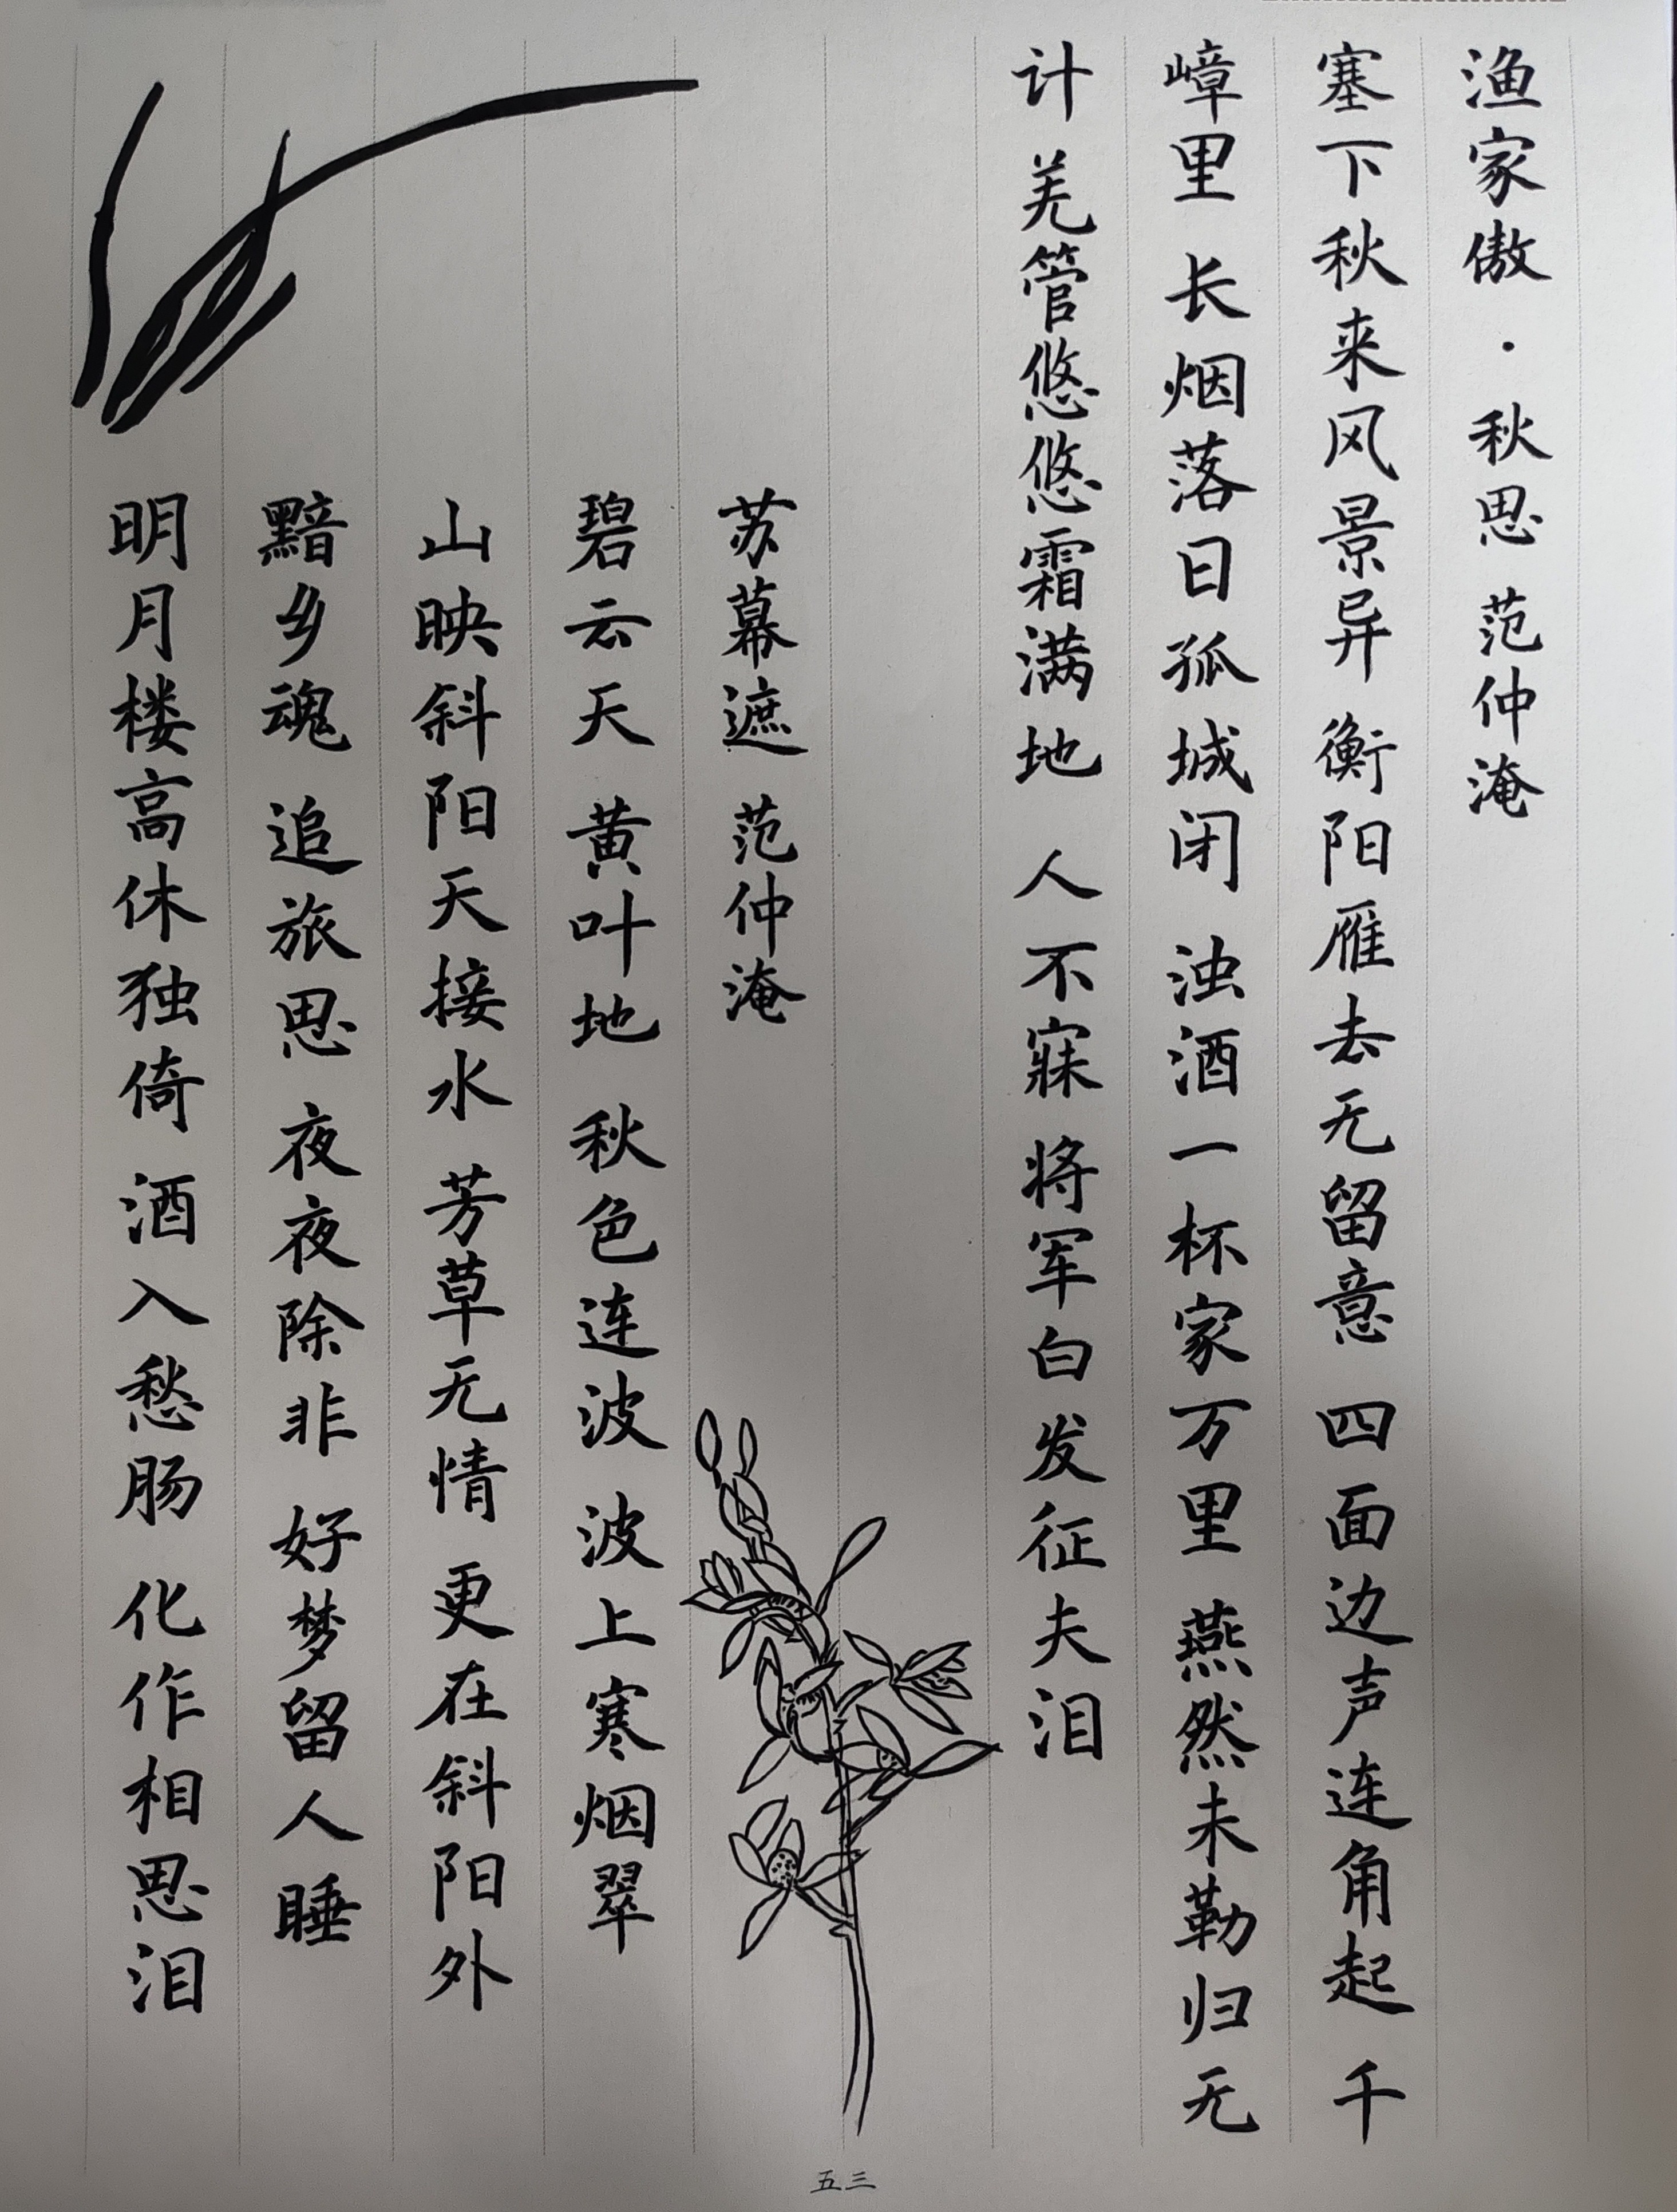 渔家傲·秋思 范仲淹
塞下秋来风景异 衡阳雁去无留意 四面边声连角起 千
嶂里 长烟落日孤城闭 浊酒一杯家万里 燕然未勒归无
计 羌管悠悠霜满地 人不寐 将军白发征夫泪
苏幕遮 范仲淹
碧云天 黄叶地 秋色连波 波上寒烟翠
山映斜阳天接水 芳草无情 更在斜阳外
黯乡魂 追旅思 夜夜除非 好梦留人睡
明月楼高休独倚 酒入愁肠 化作相思泪
五三